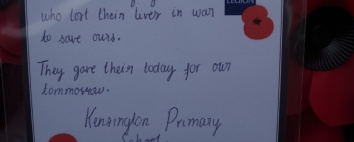 LEGION
who lost their lives in war
to save ours.
They gave their today for our
tommorrow.
Kensington Primary
School